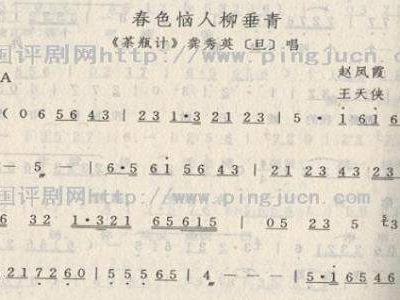 春色恼人柳垂青
《茶瓶计》龚秀英〔旦〕唱
国评剧网http://www.pingjucn.com
赵凤霞
A
王天侠
(0 6 56 43 | 23 1·3 21 23 | 5 · 1 6 1 6
— 5 — | 6·5 61 56 43 | 21 23 43 23
国评剧网http://www.pingjucn.com
6 32 1·321 65615 | 05 23 5 3
217260 | 5 35 615 | 4 — — — | 5·1 6 5 4 6